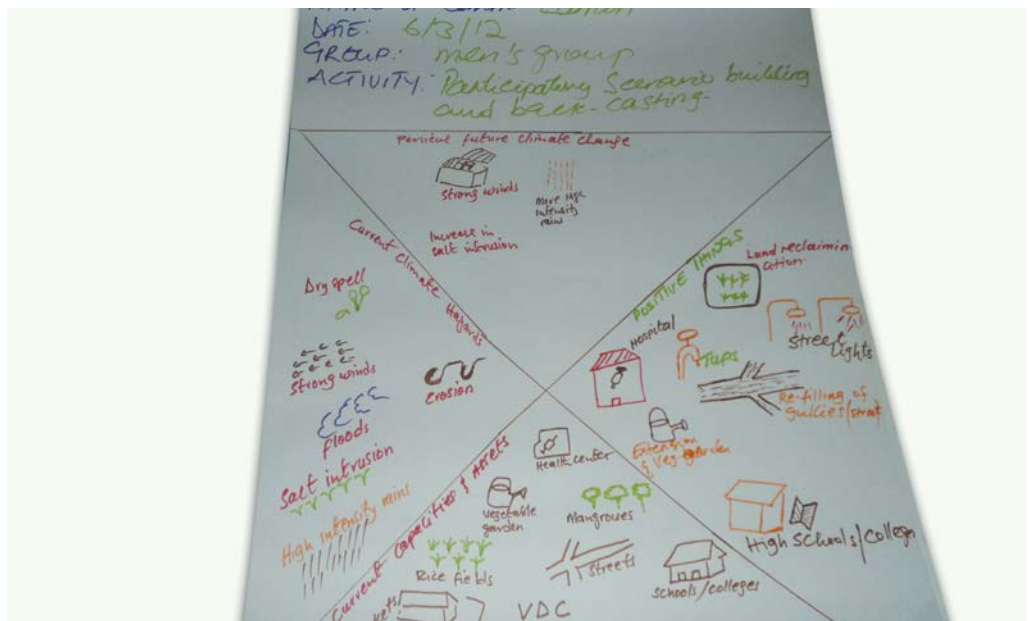 DATE: 6/3/12
GROUP: men's group
ACTIVITY: Participatory Scenario building
and back-casting-
future climate change
Strong winds
More High
intensity
rains
Increase in
salt intrusion
Current Climate Hazards
Dry spell
Strong winds
Erosion
floods
Salt intrusion
High intensity rains
POSITIVE THINGS
Land reclaimin
ation.
Street
Lights
Hospital
Taps
Re-filling of
gullies/street
Extension
of veg garden
High Schools/Colleges
Current Capacities & Assets
Health center
Vegetable
garden
Mangroves
Rice fields
Streets
Schools/colleges
VDC